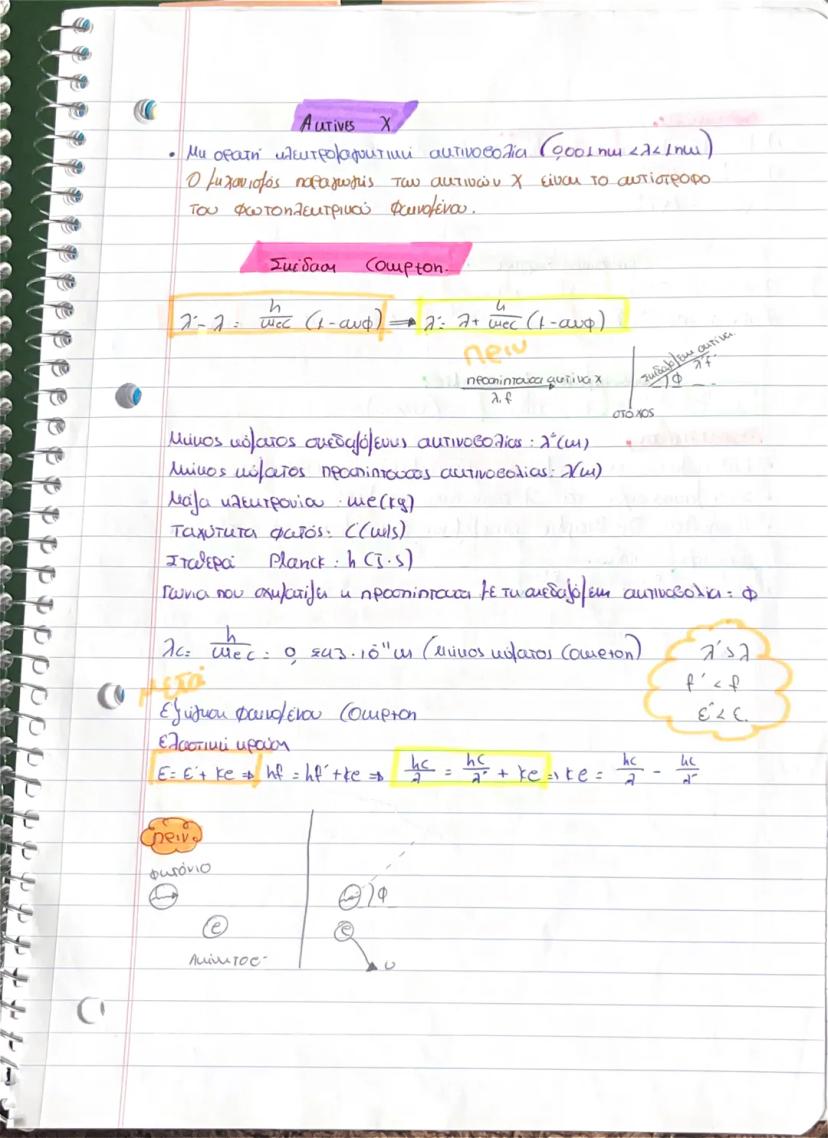 Ακτίνες Χ
• Μη ορατή ηλεκτρομαγνητική ακτινοβολία (0,001nm < λ < 1nm)
Ο μηχανισμός παραγωγής των ακτινών Χ είναι το αντίστροφο
του φωτοηλεκτρικού φαινομένου.
Σκέδαση Compton.
λ' - λ = h/mec (1-συνφ) ⟹ λ' = λ + h/mec (1-συνφ)
πριν
προσπίπτουσα ακτίνα x
λ, f
στόχος
σκεδαζόμενη ακτίνα
λ' f'
φ
Μήκος κύματος σκεδαζόμενης ακτινοβολίας: λ'(m)
Μήκος κύματος προσπίπτουσας ακτινοβολίας: λ(m)
Μάζα ηλεκτρονίου: me(kg)
Ταχύτητα φωτός: c(m/s)
Σταθερά Planck: h (J·s)
Γωνία που σχηματίζει η προσπίπτουσα με τη σκεδαζόμενη ακτινοβολία = φ
λc = h/mec = 0,243·10⁻¹¹m (Μήκος κύματος Compton)
λ' > λ
f' < f
ε' < ε.
μετά
Εξήγηση φαινομένου Compton
ελαστική κρούση
ε = ε' + ke ⇒ hf = hf' + ke ⇒ hc/λ = hc/λ' + ke ⇒ ke = hc/λ - hc/λ'
πριν
φωτόνιο
e
Ακίνητο e⁻
φ
e
υ